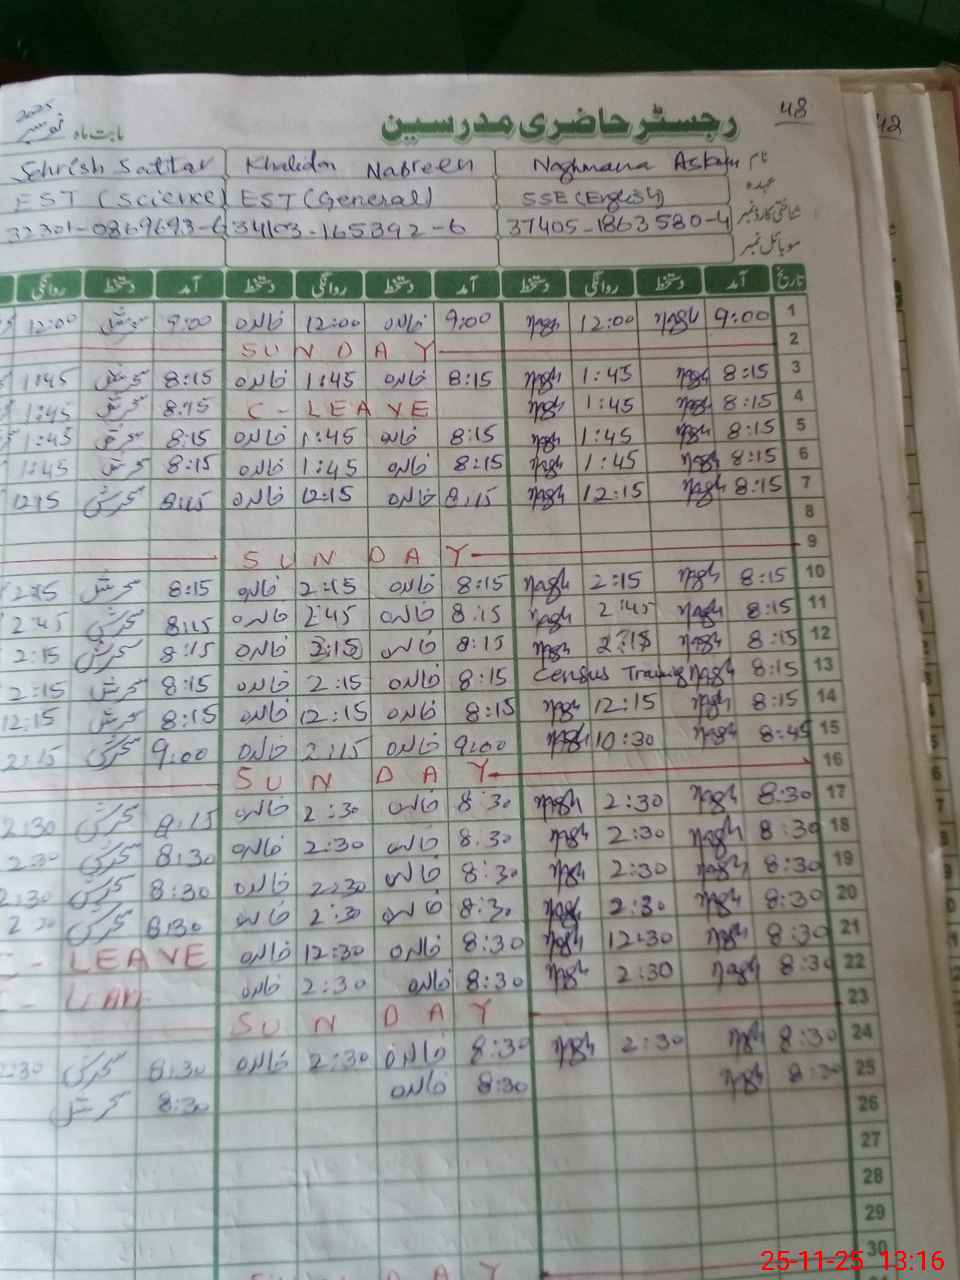 48 رجسٹر حاضری مدرسین بابت ماہ نومبر 2025
42
نام Naghmana Aslam Khalida Nasreen Sehrish Sattar
عہدہ SSE (English) EST (General) EST (Science)
شناختی کارڈ نمبر 37405-1863580-4 34103-165392-6 32301-0869693-6
موبائل نمبر
تاریخ آمد دستخط روانگی دستخط آمد دستخط روانگی دستخط آمد دستخط روانگی
1 9:00 Nagh 12:00 Nagh 9:00 خالدہ 12:00 خالدہ 9:00 سحرش 12:00
2 SUNDAY
3 8:15 Nagh 1:45 Nagh 8:15 خالدہ 1:45 خالدہ 8:15 سحرش 1:45
4 8:15 Nagh 1:45 Nagh C-LEAVE 8:15 سحرش 1:45
5 8:15 Nagh 1:45 Nagh 8:15 خالدہ 1:45 خالدہ 8:15 سحرش 1:45
6 8:15 Nagh 1:45 Nagh 8:15 خالدہ 1:45 خالدہ 8:15 سحرش 1:45
7 8:15 Nagh 12:15 Nagh 8:15 خالدہ 12:15 خالدہ 8:15 سحرش 12:15
8
9 SUNDAY
10 8:15 Nagh 2:15 Nagh 8:15 خالدہ 2:15 خالدہ 8:15 سحرش 2:15
11 8:15 Nagh 2:45 Nagh 8:15 خالدہ 2:45 خالدہ 8:15 سحرش 2:45
12 8:15 Nagh 2:15 Nagh 8:15 خالدہ 2:15 خالدہ 8:15 سحرش 2:15
13 8:15 Nagh Census Training 8:15 خالدہ 2:15 خالدہ 8:15 سحرش 2:15
14 8:15 Nagh 12:15 Nagh 8:15 خالدہ 12:15 خالدہ 8:15 سحرش 12:15
15 8:45 Nagh 10:30 Nagh 9:00 خالدہ 2:15 خالدہ 9:00 سحرش 2:15
16 SUNDAY
17 8:30 Nagh 2:30 Nagh 8:30 خالدہ 2:30 خالدہ 8:15 سحرش 2:30
18 8:30 Nagh 2:30 Nagh 8:30 خالدہ 2:30 خالدہ 8:30 سحرش 2:30
19 8:30 Nagh 2:30 Nagh 8:30 خالدہ 2:30 خالدہ 8:30 سحرش 2:30
20 8:30 Nagh 2:30 Nagh 8:30 خالدہ 2:30 خالدہ 8:30 سحرش 2:30
21 8:30 Nagh 12:30 Nagh 8:30 خالدہ 12:30 خالدہ C-LEAVE
22 8:30 Nagh 2:30 Nagh 8:30 خالدہ 2:30 خالدہ
23 SUNDAY
24 8:30 Nagh 2:30 Nagh 8:30 خالدہ 2:30 خالدہ 8:30 سحرش 2:30
25 8:30 Nagh 8:30 خالدہ 8:30 سحرش
26
27
28
29
30 SUNDAY
25-11-25 13:16